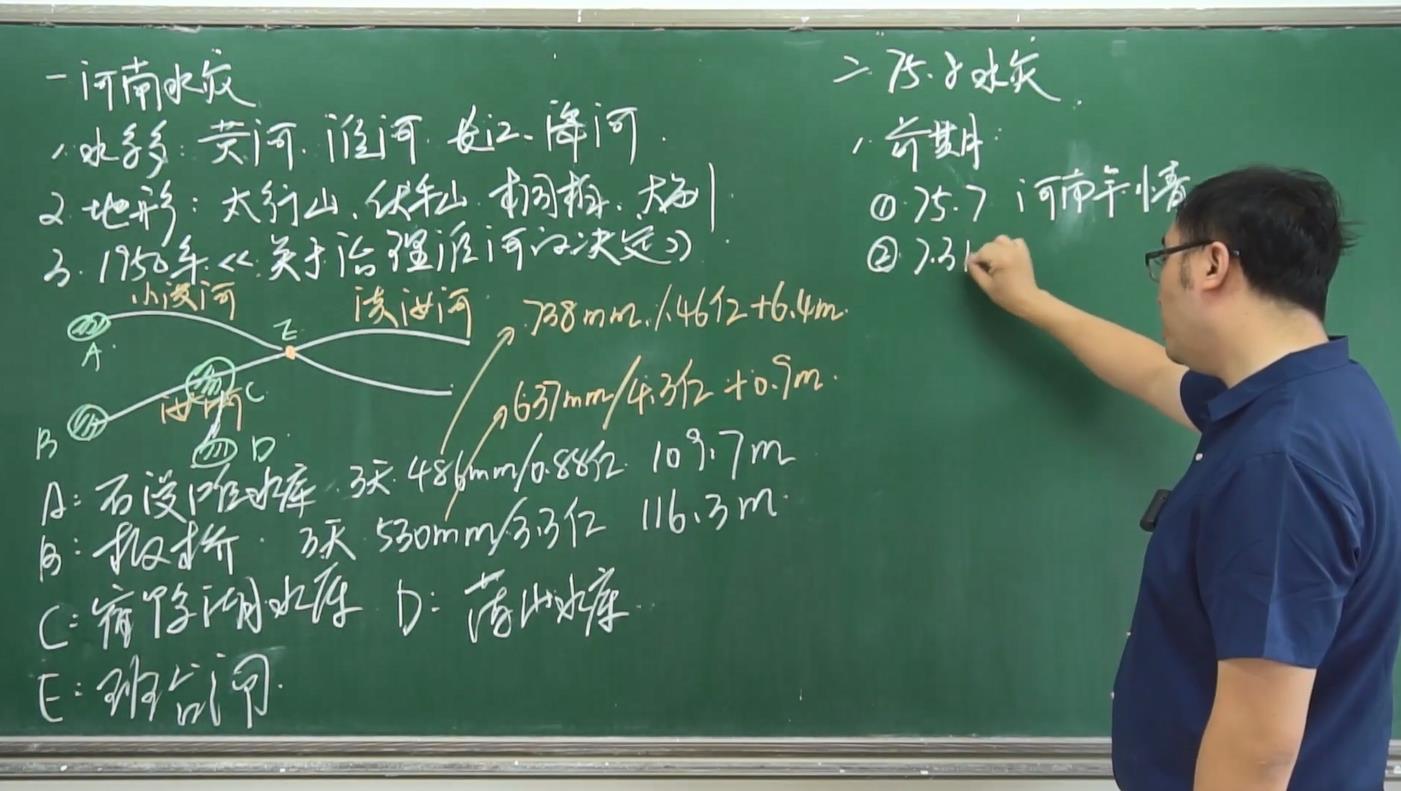 一 河南水灾
1、水系: 黄河. 淮河. 长江、海河.
2. 地形: 太行山. 伏牛山. 桐柏. 大别
3. 1950年《关于治理淮河的决定》
小洪河
洪汝河
738mm/1.46亿+6.4m.
637mm/4.3亿 +0.9m.
A
E
B
汝河
C
D
A: 石漫滩水库 3天 486mm/0.88亿 109.7m
B: 板桥. 3天 530mm/3.3亿 116.3m.
C: 宿鸭湖水库 D: 薄山水库.
E: 班台闸.
二. 75.8水灾.
1、前期:
① 75.7 河南午
② 7.31